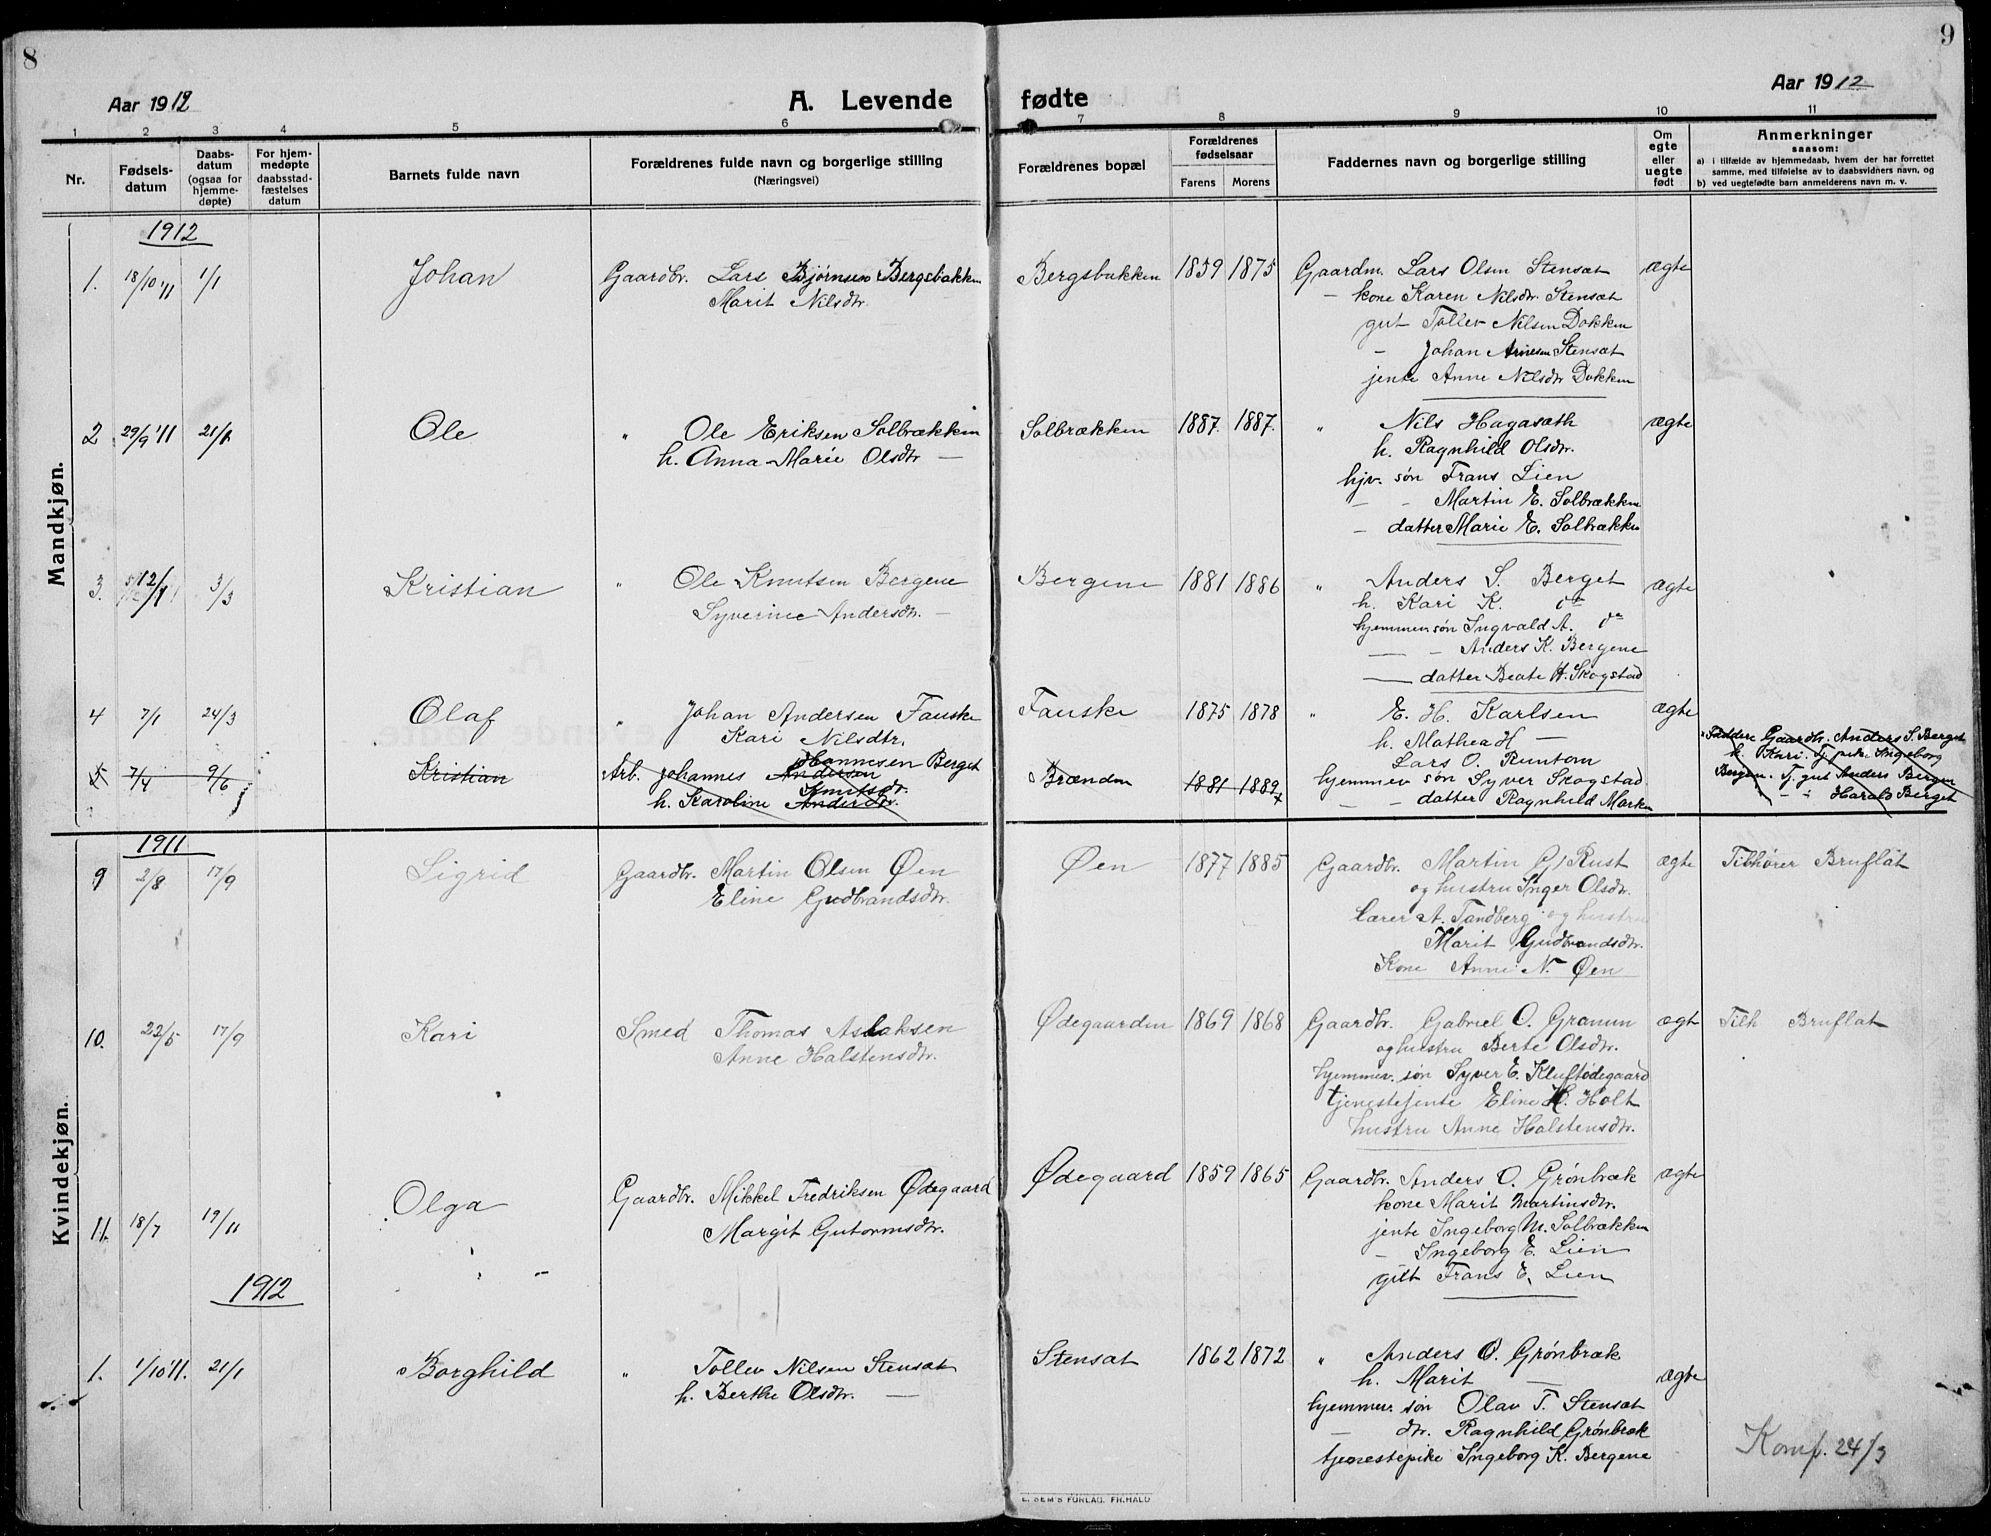 8
9
Aar 1912
A. Levende fødte
Aar 1912
1 2 3 4 5 6 7 8 9 10 11
Nr.
Fødsels-
datum
Daabs-
datum
(ogsaa for
hjemme-
døpte)
For hjem-
medøpte
daabsstad-
fæstelses
datum
Barnets fulde navn
Forældrenes fulde navn og borgerlige stilling
(Næringsvei)
Forældrenes bopæl
Forældrenes
fødselsaar
Farens Morens
Faddernes navn og borgerlige stilling
Om
egte
eller
uegte
født
Anmerkninger
saasom:
a) i tilfælde av hjemmedaab, hvem der har forrettet
samme, med tilføielse av to daabsvidners navn, og
b) ved uegtefødte barn anmelderens navn m. v.
Mandkjøn.
1912
1. 18/10 '11 1/1 Johan Gaardbr. Lars Bjørnsen Bergsbakken Bergsbakken 1859 1875 Gaardm. Lars Olsen Stensæt ægte
Marit Nilsdtr.
— kone Karen Nilsdtr. Stensæt
gut Tollev Nilsen Dokken
— Johan Arnesen Stensæt
jente Anne Nilsdtr Dokken
2 29/9 '11 21/1 Ole " Ole Eriksen Solbrækken Solbrækken 1887. 1887. " Nils Hagasæth ægte
h. Anna-Marie Olsdtr —
h. Ragnhild Olsdtr.
hjv. søn Frans Lien
— - Martin E. Solbrækken
- datter Marie E. Solbrækken
3. 3/3 Kristian " Ole Knutsen Bergene Bergene 1881 1886 " Anders S. Berget ægte
Syverine Andersdtr. —
h. Kari K. do
hjemmev. søn Ingvald A. do
— - Anders K. Bergene
— datter Beate H. Skogstad
4 7/1 24/3 Olaf " Johan Andersen Fauske Fauske 1875 1878 " E. H. Karlsen ægte
Kari Nilsdtr.
h. Mathea H —
Lars O. Runtom
5 7/4 9/6 Kristian Arb. Johannes Andersen Johannesen Berget Brænden 1881 1889 hjemmev søn Syver Skogstad
h. Karoline Andersdtr. Knutsdr.
— - datter Ragnhild Marken
Faddere Gaardbr. Anders S. Berget
h. Kari. Tj. pike Ingeborg
Bergen. Tj. gut Anders Bergen
" - " Harald Berget
Kvindekjøn.
1911
9 2/8 17/9 Sigrid Gaardbr. Martin Olsen Øen Øen 1877 1885 Gaardbr. Martin G. Rust ægte Tilhører Bruflat
Eline Gudbrandsdtr.
og hustru Inger Olsdtr.
lærer A. Tandberg og hustru
Marit Gudbrandsdtr.
Kone Anne N. Øen
10. 22/5 17/9 Kari Smed Thomas Aslaksen Ødegaarden 1869 1868 Gaardbr. Gabriel O. Granum ægt Tilh Bruflat
Anne Halstensdtr.
og hustru Berte Olsdtr.
hjemmev. søn Syver E. Kluftødegaard
tjenestejente Eline H. Holt
hustru Anne Halstensdtr.
11. 18/7 19/11 Olga Gaardbr. Mikkel Fredriksen Ødegaard Ødegaard 1859 1865 Gaardbr. Anders O. Grønbræk ægte
Margit Gutormsdtr.
kone Marit Martinsdtr.
jente Ingeborg M. Solbrækken
— Ingeborg E. Lien
gift Frans E. Lien
1912
1. 1/10 '11. 21/1 Borghild " Tollev Nilsen Stensæt Stensæt 1862 1872 " Anders O. Grønbræk ægte
h. Berthe Olsdtr. —
h. Marit —
hjemmev. søn Olav T. Stensæt
— dtr. Ragnhild Grønbræk
tjenestepike Ingeborg K. Bergene
Komf. 24/3
E. SEM'S FORLAG. FR.HALD